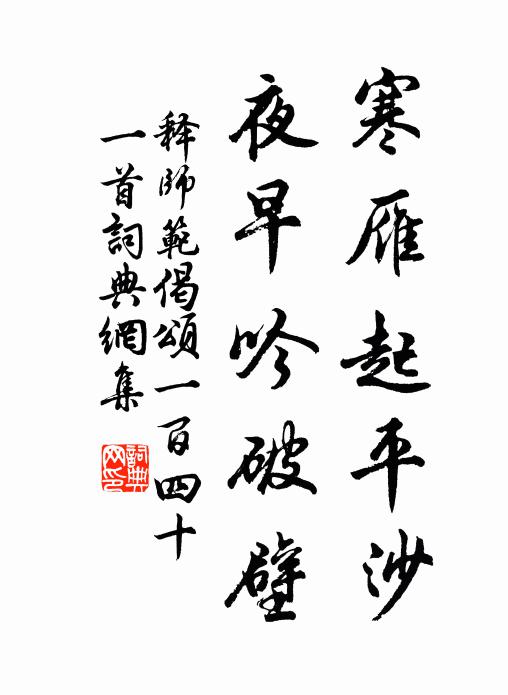 寒雁起平沙
夜早吟破壁
释師範偈頌一百四十
一首詞典網集
詞典网印